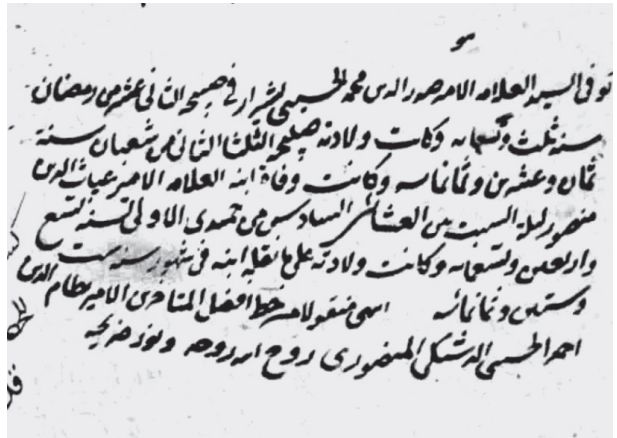 هو
توفى السيد العلامه الامير صدر الدين محمد الحسينى بشيراز فى صبيحه الثانى عشر من رمضان
سنه ثلث وتسعمائه وكانت ولادته صبيحه الثلثا الثانى من شعبان سنة
ثمان وعشرين وثمانمائه وكانت وفاة ابنه العلامه الامير غياث الدين
منصور ليلة السبت بين العشائين السادس من جمدى الاولى سنه تسع
واربعين وتسعمائه وكانت ولادته على ما نقله ابنه فى شهور سنه ست
وستين وثمانمائه انتهى منقولا من خط افضل المتاخرين الامير نظام الدين
احمد الحسينى الدشتكى المنصورى روح الله روحه ونور ضريحه